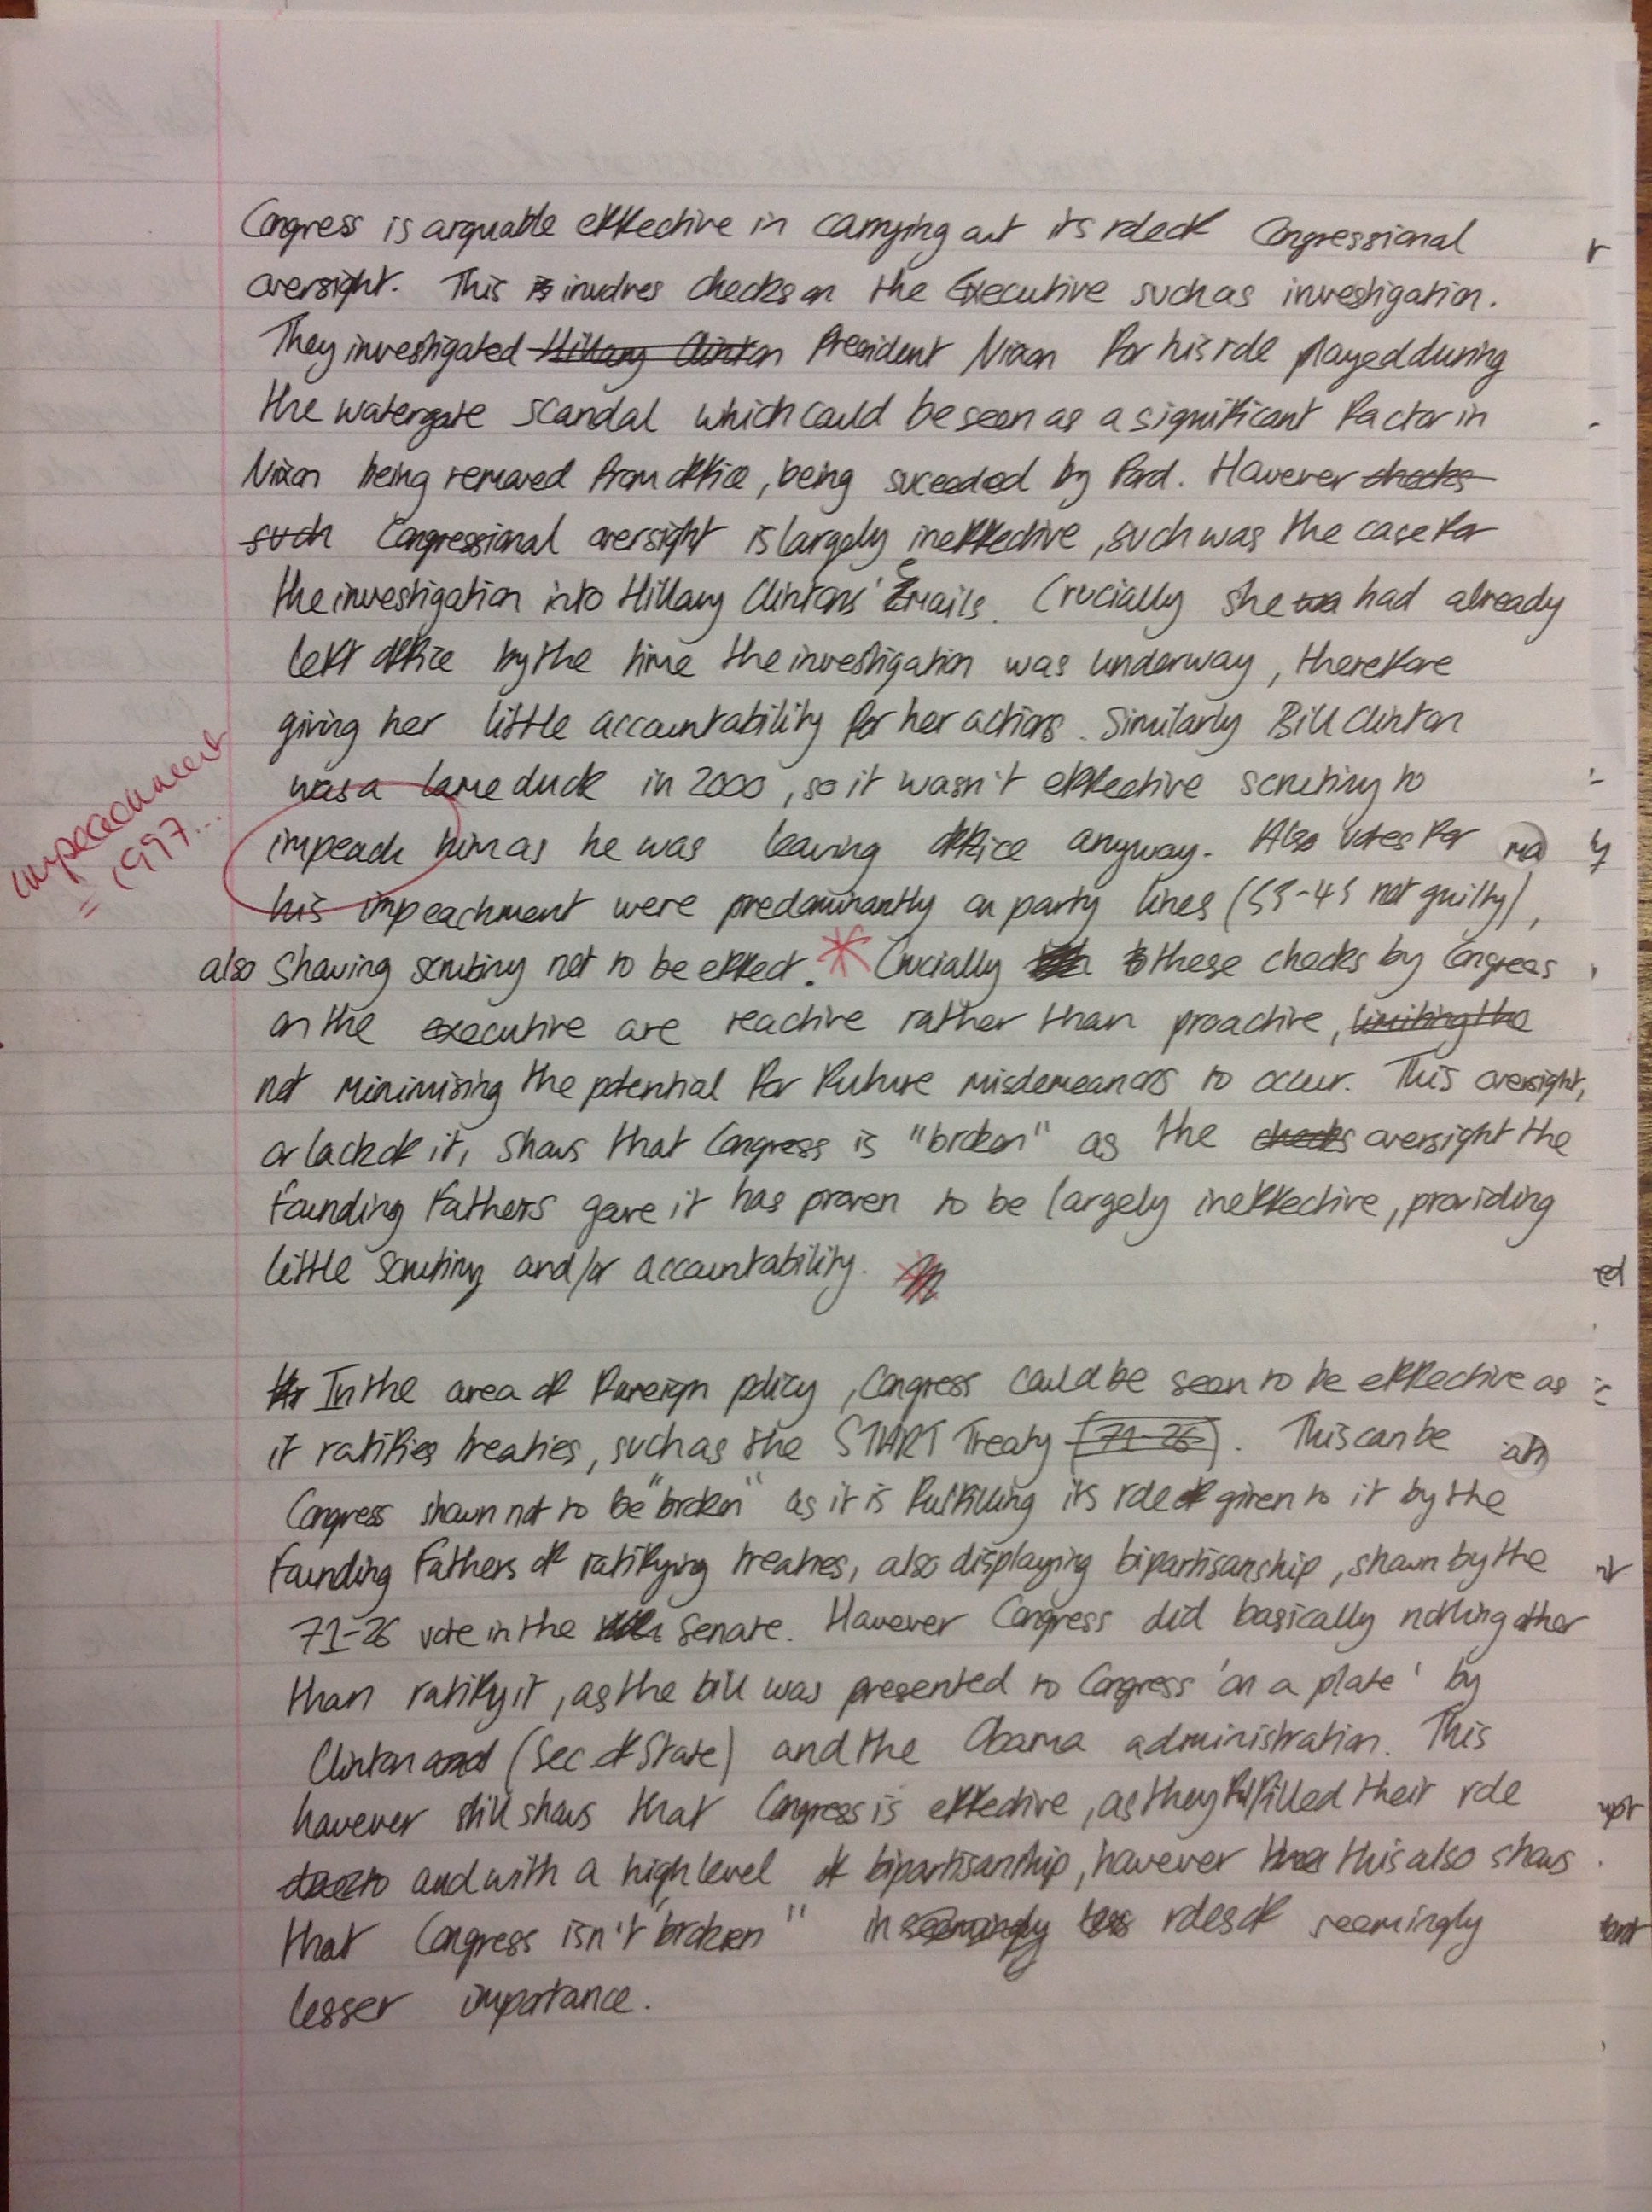 Congress is arguable effective in carrying out its role of Congressional
oversight. This is involves checks on the Executive such as investigation.
They investigated Hillary Clinton President Nixon for his role played during
the watergate scandal which could be seen as a significant factor in
Nixon being removed from office, being suceeded by Ford. However checks
such Congressional oversight is largely ineffective, such was the case for
the investigation into Hillary Clintons' Emails. Crucially she was had already
left office by the time the investigation was underway, therefore
giving her little accountability for her actions. Similarly Bill Clinton
was a lame duck in 2000, so it wasn't effective scrutiny to
impeachment
1997...
impeach him as he was leaving office anyway. Also votes for
his impeachment were predominantly on party lines (55-45 not guilty),
also showing scrutiny not to be effect. * Crucially these checks by Congress
on the executive are reactive rather than proactive, limiting the
not minimising the potential for future misdemeanors to occur. This oversight,
or lack of it, shows that Congress is "broken" as the checks oversight the
founding fathers gave it has proven to be largely ineffective, providing
little scrutiny and/or accountability.
In the area of foreign policy, Congress could be seen to be effective as
it ratifies treaties, such as the START Treaty (71-26). This can be
Congress shown not to be "broken" as it is fulfilling its role of given to it by the
founding fathers of ratifying treaties, also displaying bipartisanship, shown by the
71-26 vote in the Senate. However Congress did basically nothing other
than ratify it, as the bill was presented to Congress 'on a plate' by
Clinton and (Sec of State) and the Obama administration. This
however still shows that Congress is effective, as they fulfilled their role
and with a high level of bipartisanship, however this also shows
that Congress isn't "broken" in seemingly less roles of seemingly
lesser importance.